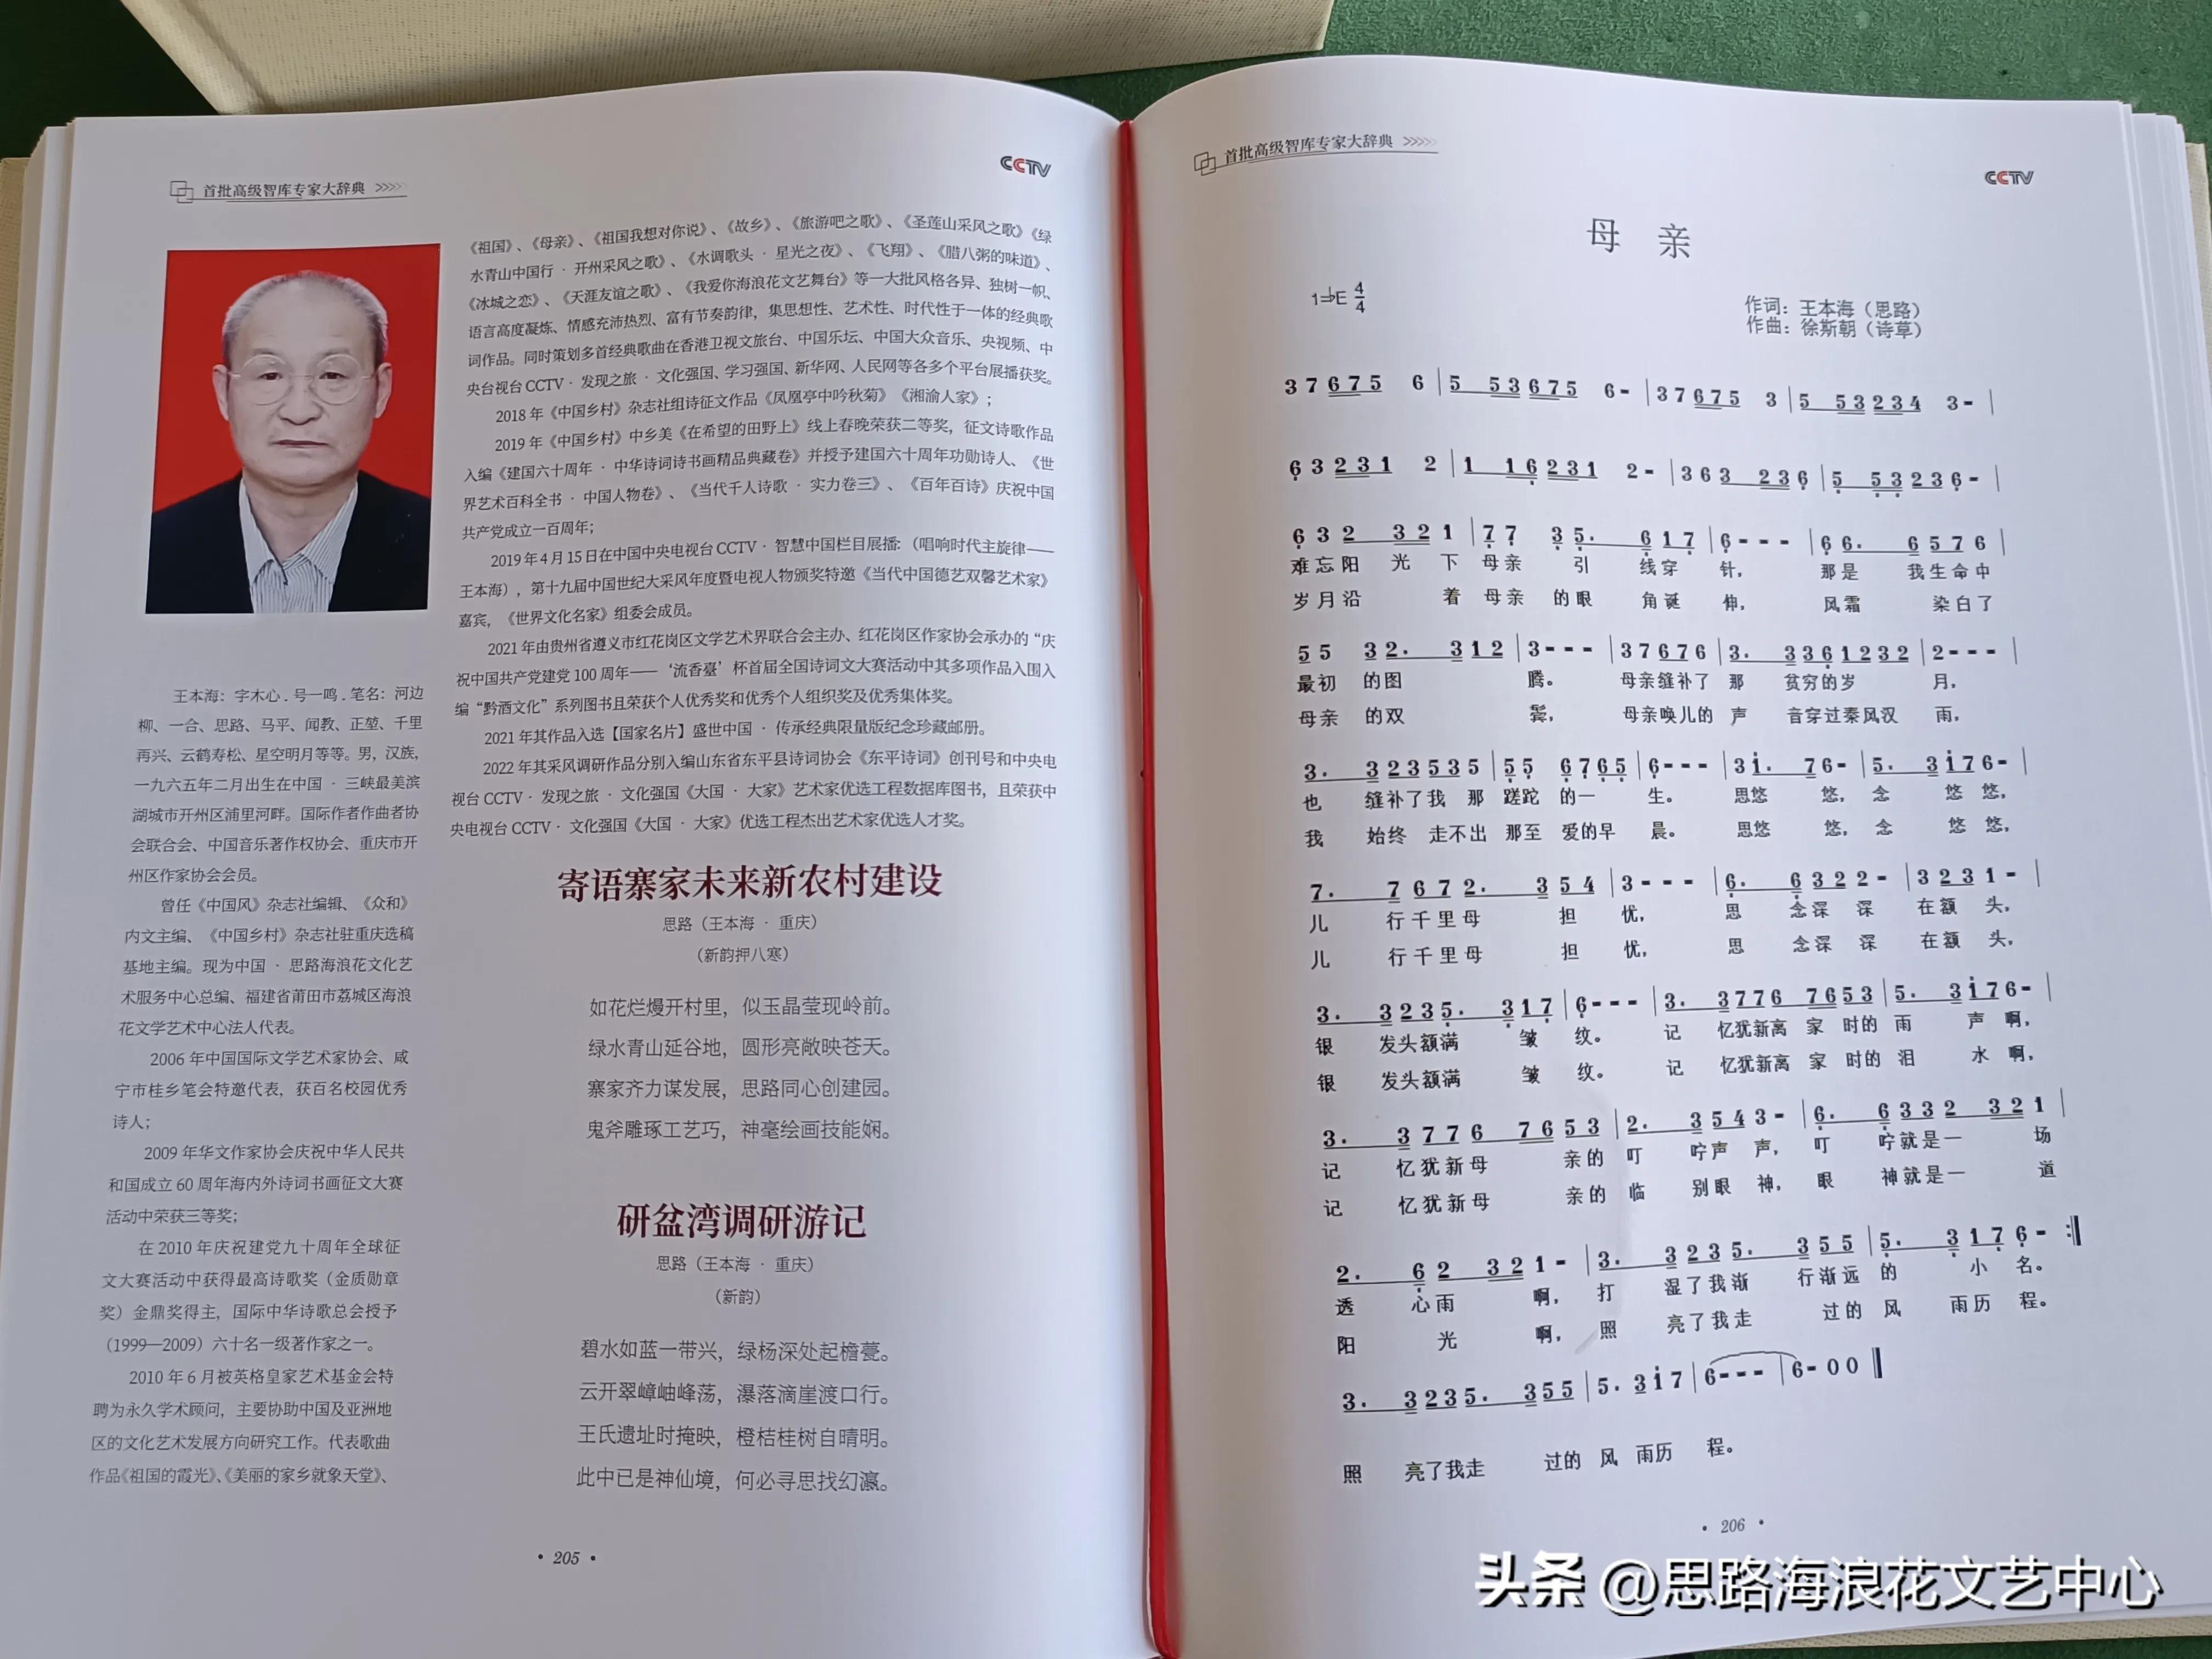 首批高级智库专家大辞典
CCTV
王本海：字木心.号一鸣.笔名：河边
柳、一合、思路、马平、闻教、正堃、千里
再兴、云鹤寿松、星空明月等等。男，汉族，
一九六五年二月出生在中国·三峡最美滨
湖城市开州区浦里河畔。国际作者作曲者协
会联合会、中国音乐著作权协会、重庆市开
州区作家协会会员。
曾任《中国风》杂志社编辑、《众和》
内文主编、《中国乡村》杂志社驻重庆选稿
基地主编。现为中国·思路海浪花文化艺
术服务中心总编、福建省莆田市荔城区海浪
花文学艺术中心法人代表。
2006 年中国国际文学艺术家协会、咸
宁市桂乡笔会特邀代表，获百名校园优秀
诗人；
2009 年华文作家协会庆祝中华人民共
和国成立 60 周年海内外诗词书画征文大赛
活动中荣获三等奖；
在 2010 年庆祝建党九十周年全球征
文大赛活动中获得最高诗歌奖（金质勋章
奖）金鼎奖得主，国际中华诗歌总会授予
（1999—2009）六十名一级著作家之一。
2010 年 6 月被英格皇家艺术基金会特
聘为永久学术顾问，主要协助中国及亚洲地
区的文化艺术发展方向研究工作。代表歌曲
作品《祖国的霞光》、《美丽的家乡就象天堂》、
《祖国》、《母亲》、《祖国我想对你说》、《故乡》、《旅游吧之歌》、《圣莲山采风之歌》《绿
水青山中国行·开州采风之歌》、《水调歌头·星光之夜》、《飞翔》、《腊八粥的味道》、
《冰城之恋》、《天涯友谊之歌》、《我爱你海浪花文艺舞台》等一大批风格各异、独树一帜、
语言高度凝炼、情感充沛热烈、富有节奏韵律，集思想性、艺术性、时代性于一体的经典歌
词作品。同时策划多首经典歌曲在香港卫视文旅台、中国乐坛、中国大众音乐、央视频、中
央台视台 CCTV·发现之旅·文化强国、学习强国、新华网、人民网等各多个平台展播获奖。
2018 年《中国乡村》杂志社组诗征文作品《凤凰亭中吟秋菊》《湘渝人家》；
2019 年《中国乡村》中乡美《在希望的田野上》线上春晚荣获二等奖，征文诗歌作品
入编《建国六十周年·中华诗词诗书画精品典藏卷》并授予建国六十周年功勋诗人、《世
界艺术百科全书·中国人物卷》、《当代千人诗歌·实力卷三》、《百年百诗》庆祝中国
共产党成立一百周年；
2019 年 4 月 15 日在中国中央电视台 CCTV·智慧中国栏目展播：（唱响时代主旋律——
王本海），第十九届中国世纪大采风年度暨电视人物颁奖特邀《当代中国德艺双馨艺术家》
嘉宾，《世界文化名家》组委会成员。
2021 年由贵州省遵义市红花岗区文学艺术界联合会主办、红花岗区作家协会承办的“庆
祝中国共产党建党 100 周年——‘流香臺’杯首届全国诗词文大赛活动中其多项作品入围入
编“黔酒文化”系列图书且荣获个人优秀奖和优秀个人组织奖及优秀集体奖。
2021 年其作品入选【国家名片】盛世中国·传承经典限量版纪念珍藏邮册。
2022 年其采风调研作品分别入编山东省东平县诗词协会《东平诗词》创刊号和中央电
视台 CCTV·发现之旅·文化强国《大国·大家》艺术家优选工程数据库图书，且荣获中
央电视台 CCTV·文化强国《大国·大家》优选工程杰出艺术家优选人才奖。
寄语寨家未来新农村建设
思路（王本海·重庆）
（新韵押八寒）
如花烂熳开村里，似玉晶莹现岭前。
绿水青山延谷地，圆形亮敞映苍天。
寨家齐力谋发展，思路同心创建园。
鬼斧雕琢工艺巧，神毫绘画技能娴。
研盆湾调研游记
思路（王本海·重庆）
（新韵）
碧水如蓝一带兴，绿杨深处起檐甍。
云开翠嶂岫峰荡，瀑落滴崖渡口行。
王氏遗址时掩映，橙桔桂树自晴明。
此中已是神仙境，何必寻思找幻瀛。
• 205 •
首批高级智库专家大辞典
CCTV
母 亲
1=♭E 4/4
作词：王本海（思路）
作曲：徐斯朝（诗草）
3 7 6 7 5 6 | 5 5 3 6 7 5 6 - | 3 7 6 7 5 3 | 5 5 3 2 3 4 3 - |
6 3 2 3 1 2 | 1 1 6 2 3 1 2 - | 3 6 3 2 3 6 | 5 5 3 2 3 6 - |
6 3 2 3 2 1 | 7 7 3 5. 6 1 7 | 6 - - - | 6 6. 6 5 7 6 |
难忘阳 光 下 母亲 引 线穿 针， 那是 我生命中
岁月沿 着 母亲 的眼 角诞 伸， 风霜 染白了
5 5 3 2. 3 1 2 | 3 - - - | 3 7 6 7 6 | 3. 3 3 6 1 2 3 2 | 2 - - - |
最初 的图 腾。 母亲缝补了 那 贫穷的岁 月，
母亲 的双 鬓， 母亲唤儿的 声 音穿过秦风汉 雨，
3. 3 2 3 5 3 5 | 5 5 6 7 6 5 | 6 - - - | 3 1. 7 6 - | 5. 3 1 7 6 - |
也 缝补了我 那 蹉跎 的一 生。 思悠 悠， 念 悠 悠，
我 始终 走不出 那至 爱的早 晨。 思悠 悠， 念 悠 悠，
7. 7 6 7 2. 3 5 4 | 3 - - - | 6. 6 3 2 2 - | 3 2 3 1 - |
儿 行千里母 担 忧， 思 念深 深 在额 头，
儿 行千里母 担 忧， 思 念深 深 在额 头，
3. 3 2 3 5. 3 1 7 | 6 - - - | 3. 3 7 7 6 7 6 5 3 | 5. 3 1 7 6 - |
银 发头额满 皱 纹。 记 忆犹新离 家 时的 雨 声 啊，
银 发头额满 皱 纹。 记 忆犹新离 家 时的 泪 水 啊，
3. 3 7 7 6 7 6 5 3 | 2. 3 5 4 3 - | 6. 6 3 3 2 3 2 1 |
记 忆犹新母 亲的 叮 咛声 声， 叮 咛就是一 场
记 忆犹新母 亲的 临 别眼 神， 眼 神就是一 道
2. 6 2 3 2 1 - | 3. 3 2 3 5. 3 5 5 | 5. 3 1 7 6 - :‖
透 心雨 啊， 打 湿了我渐 行渐远 的 小 名。
阳 光 啊， 照 亮了我走 过的 风 雨历 程。
3. 3 2 3 5. 3 5 5 | 5. 3 1 7 | 6 - - - | 6 - 0 0 ‖
照 亮了我走 过的 风 雨历 程。
• 206 •
头条 @思路海浪花文艺中心